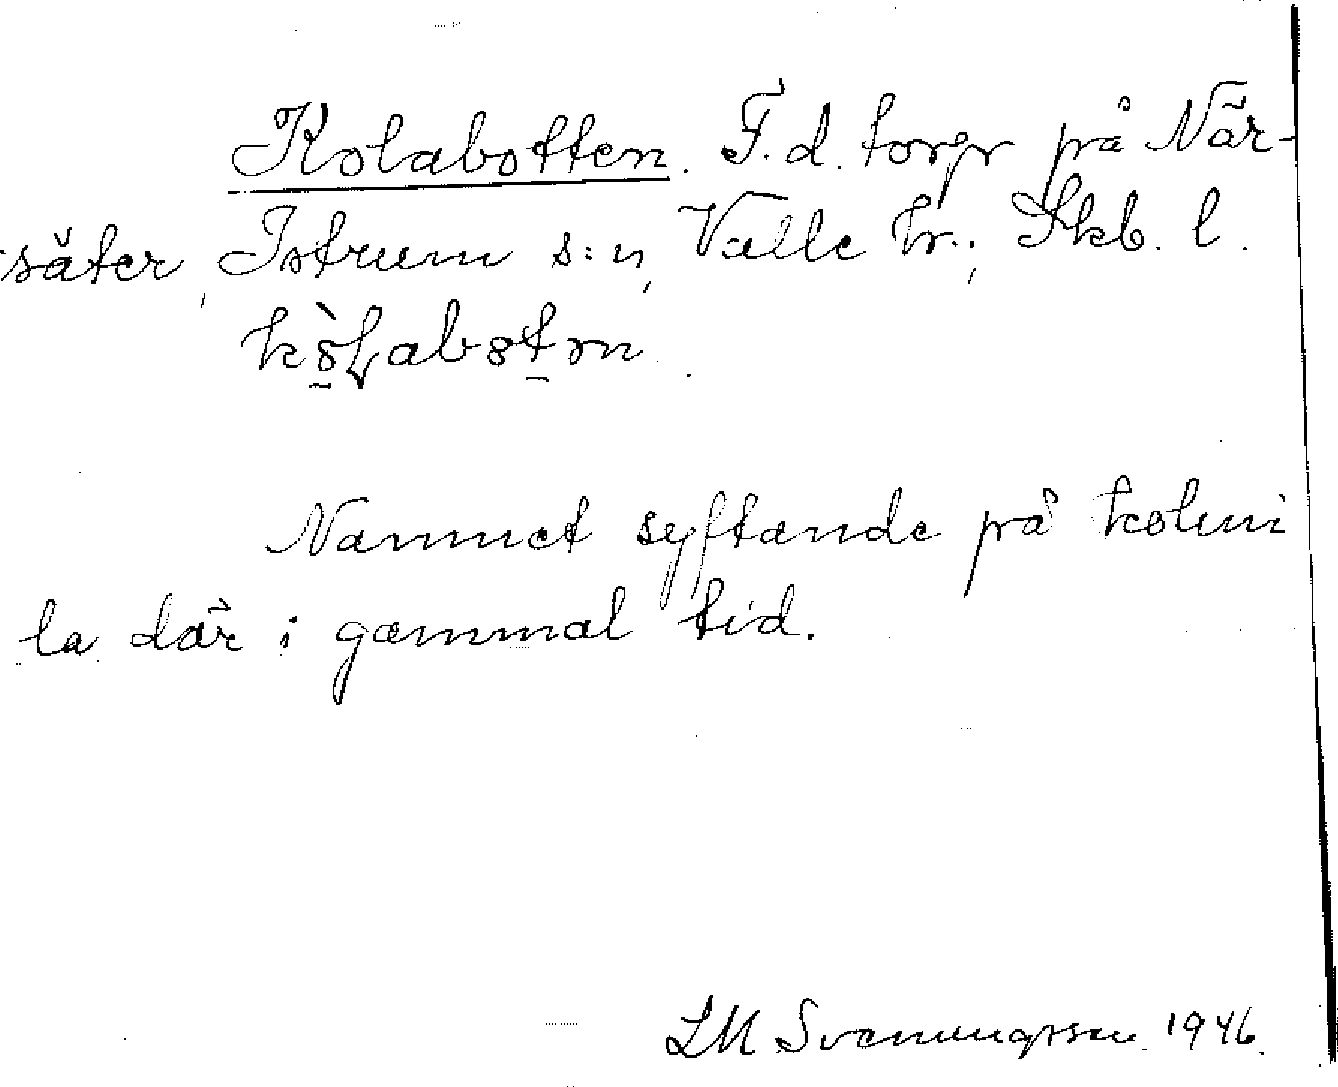 Kolabotten. F.d. torp på När-
säter, Istrum s:n, Valle hr., Skb. l.

Namnet syftande på kolmi
la där i gammal tid.
LM Svenungsson 1946.